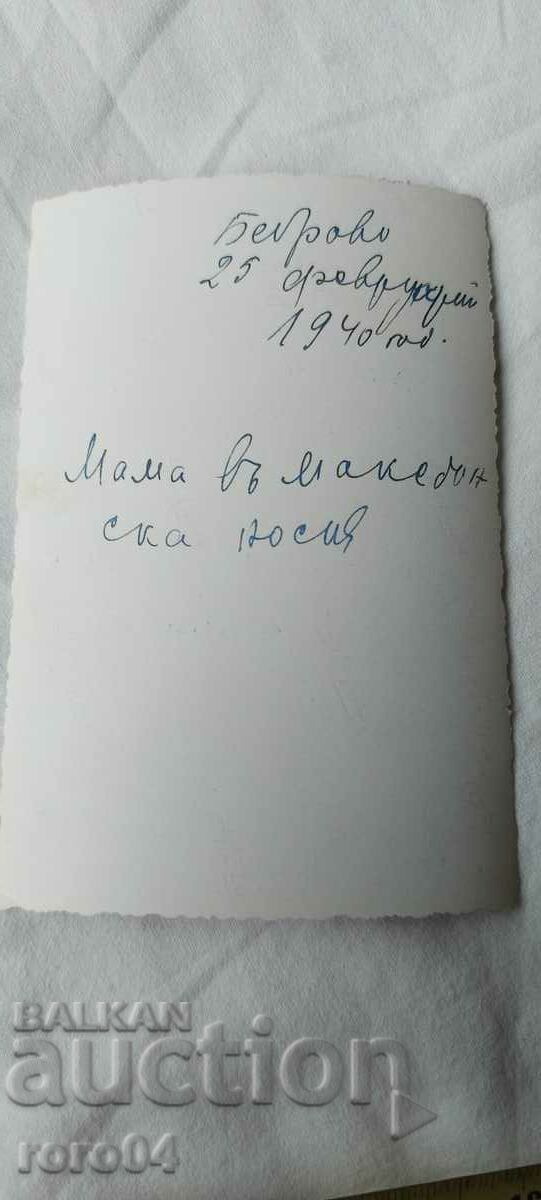 Беброво
25 февруарий
1940 год.
Мама въ македон
ска носия
BALKAN
auction
roro04